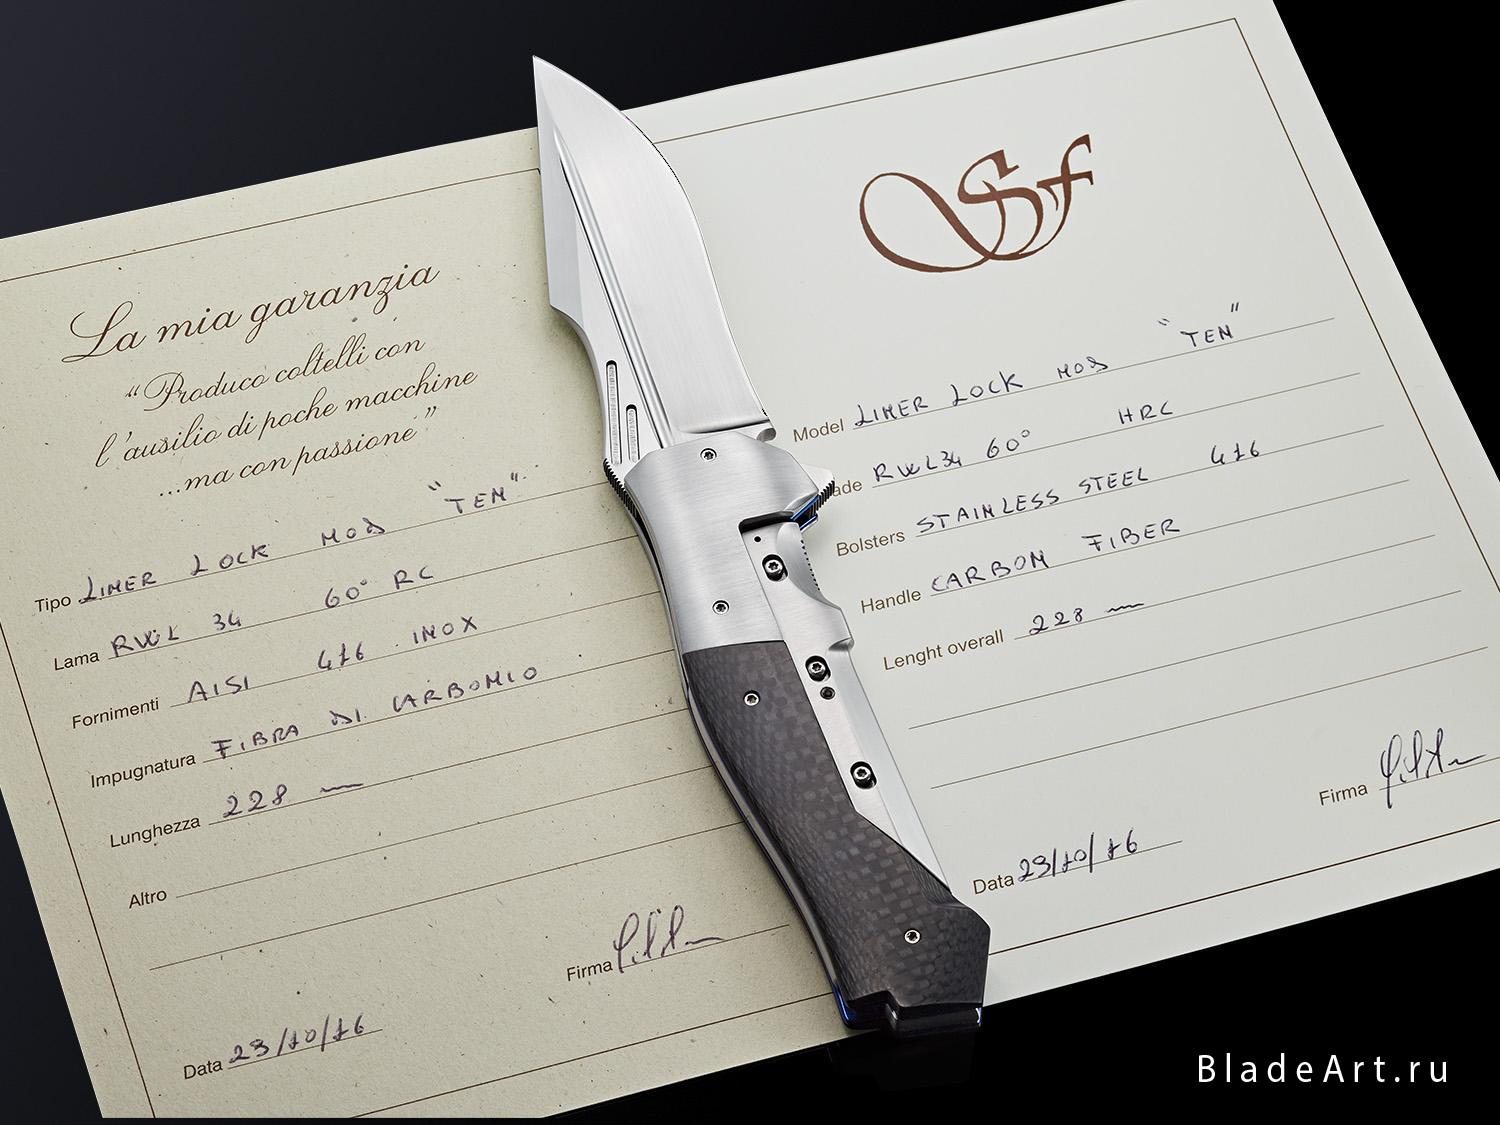 La mia garanzia
"Produco coltelli con
l'ausilio di poche macchine
...ma con passione"
Tipo LINER LOCK MOD "TEN"
Lama RWL 34 60° RC
Fornimenti AISI 416 INOX
Impugnatura FIBRA DI CARBONIO
Lunghezza 228 mm
Altro
Firma
Data 23/10/16
Sf
Model LINER LOCK MOD "TEN"
ade RWL34 60° HRC
Bolsters STAINLESS STEEL 416
Handle CARBON FIBER
Lenght overall 228 mm
Firma
Data 23/10/16
BladeArt.ru